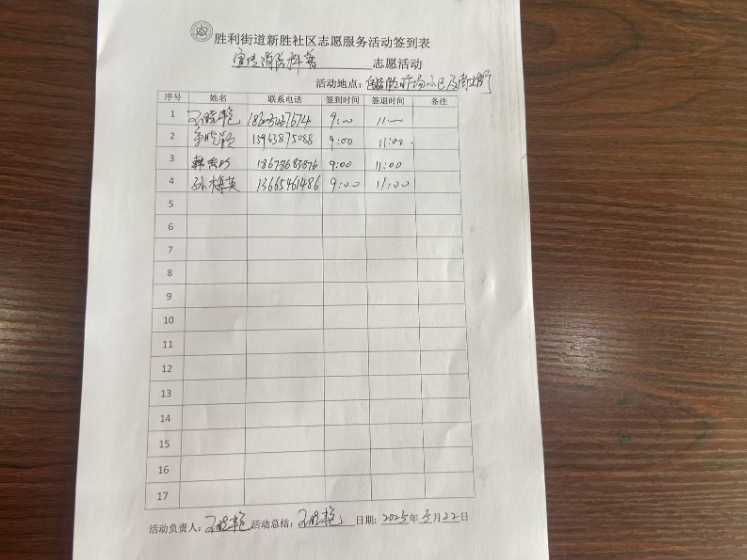 胜利街道新胜社区志愿服务活动签到表
宣传消防科普 志愿活动
活动地点：
序号 姓名 联系电话 签到时间 签退时间 备注
1 王晓艳 9:00 11:00
2 李晓颖 15963875088 9:00 11:00
3 18678683876 9:00 11:00
4 孙梅英 13665461486 9:00 11:00
5
6
7
8
9
10
11
12
13
14
15
16
17
活动负责人：王晓艳 活动总结：王晓艳 日期：2025年3月22日